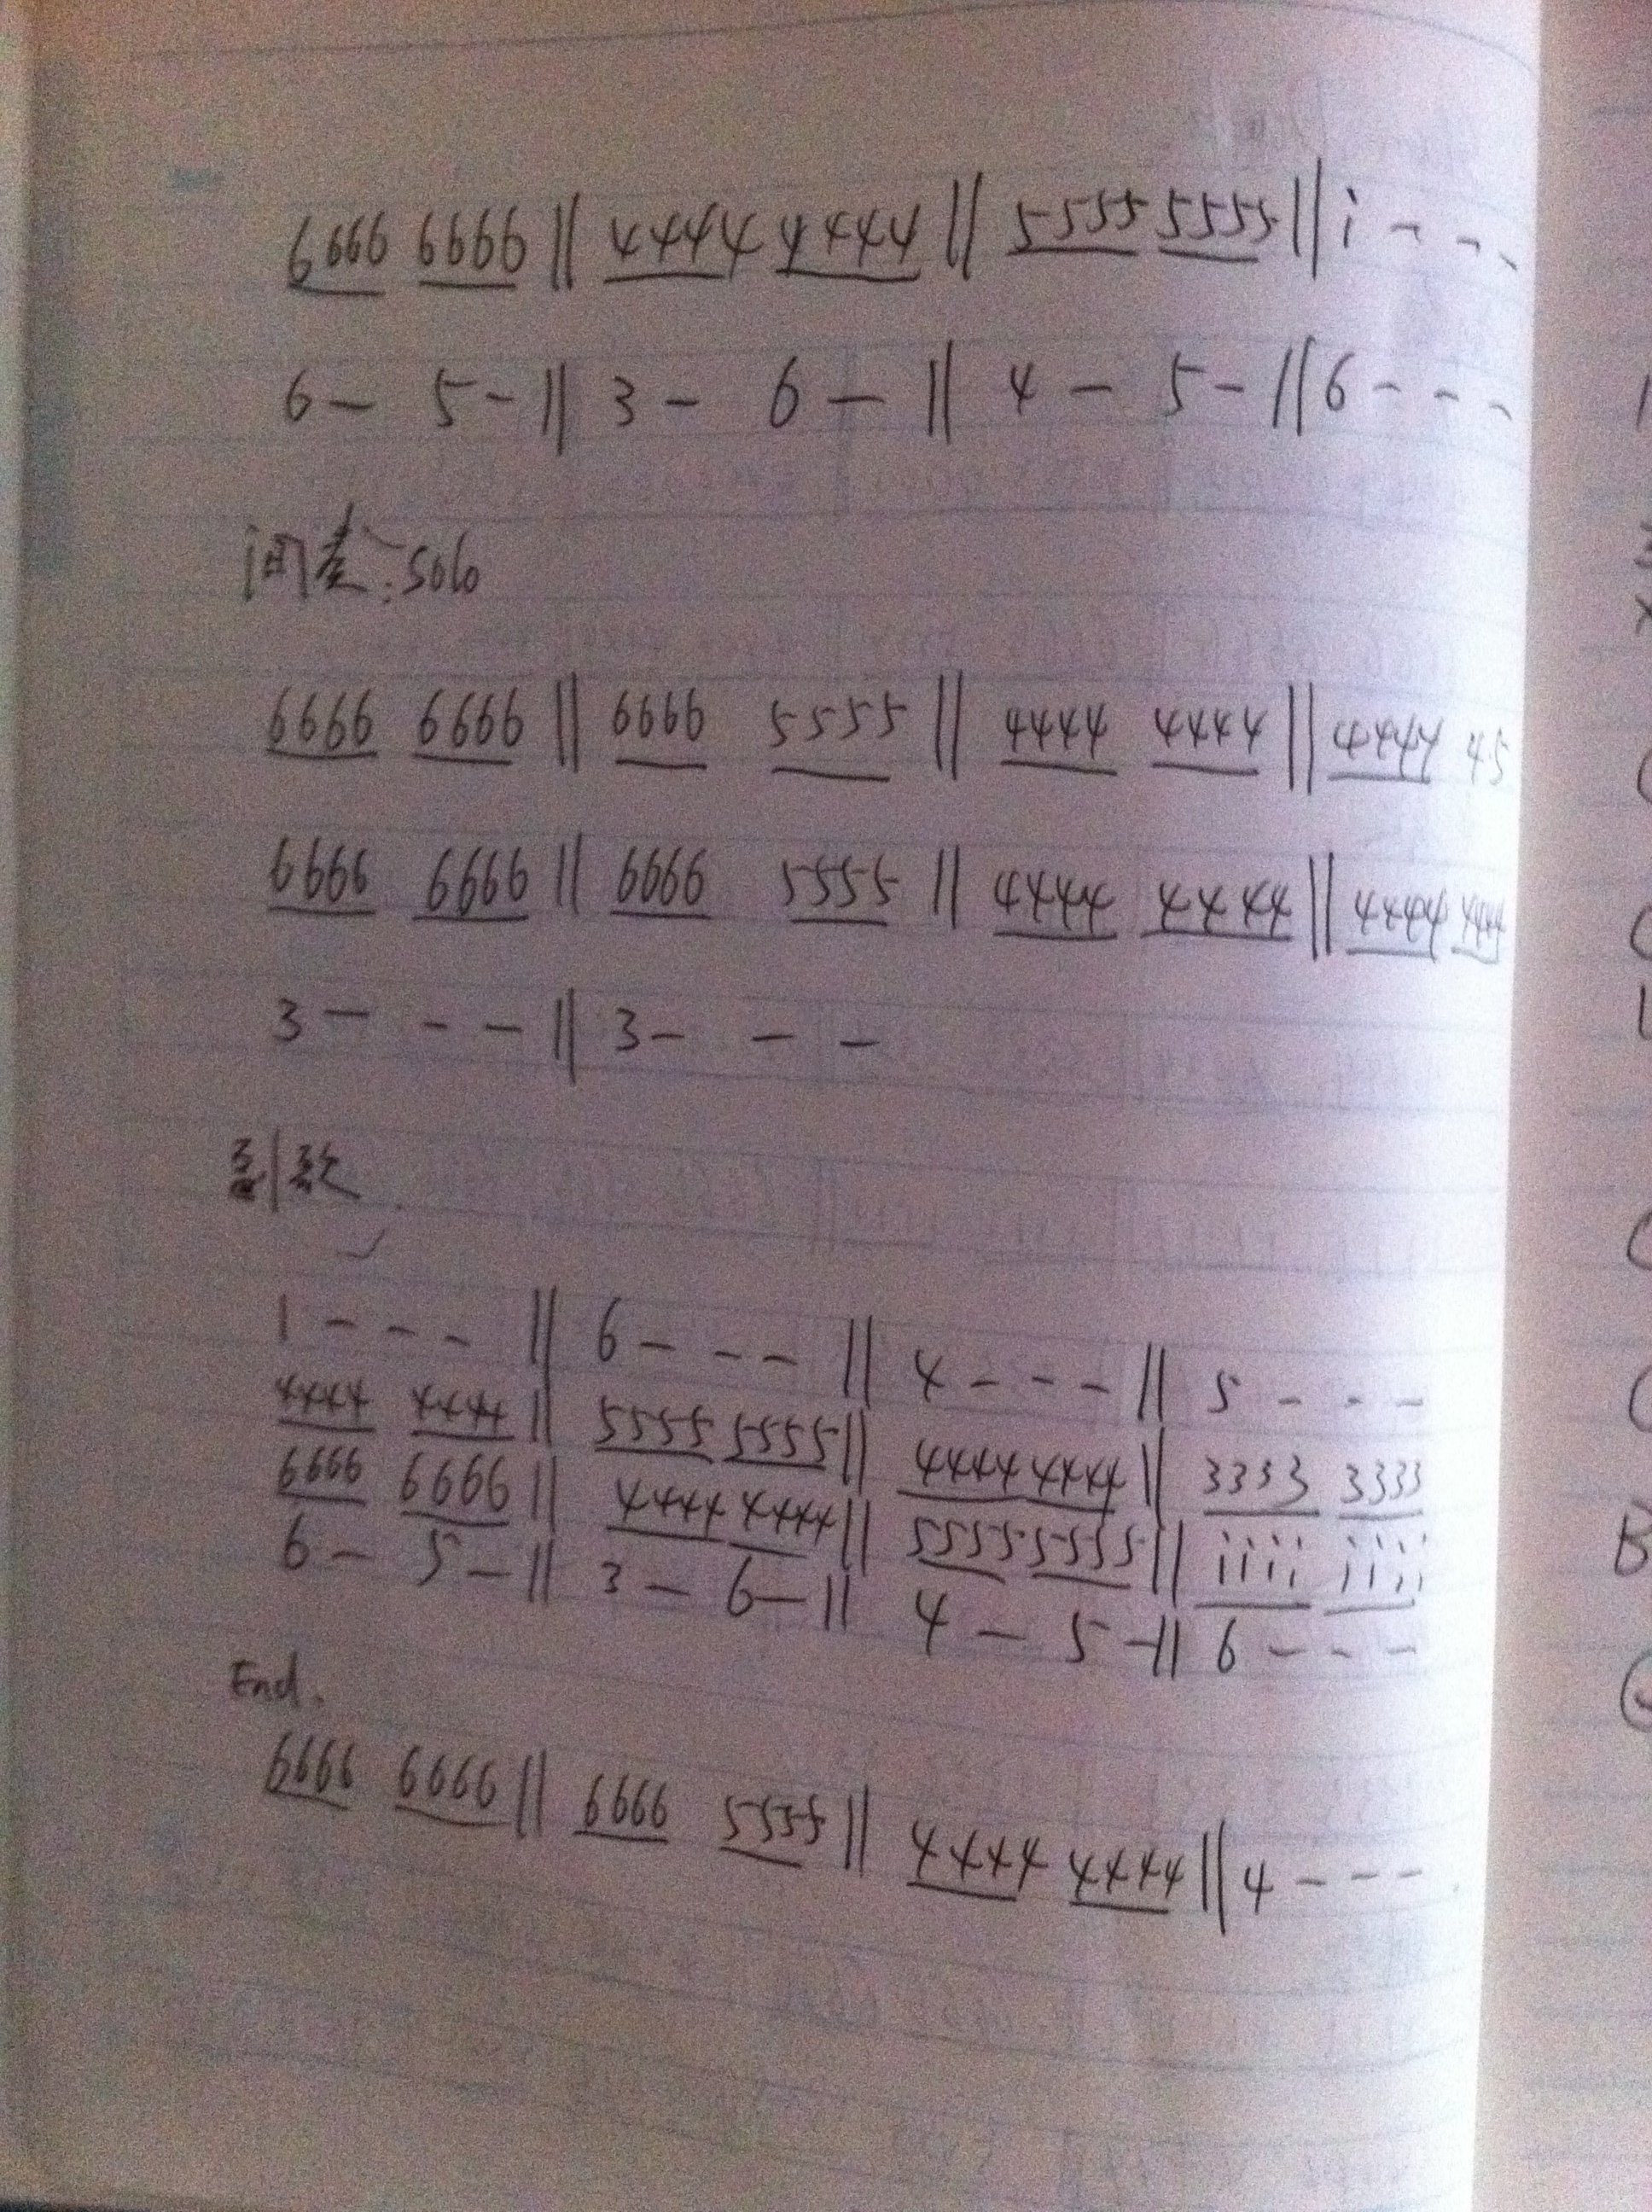 6666 6666 || 4444 4444 || 5555 5555 || i - - -
6 - 5 - || 3 - 6 - || 4 - 5 - || 6 - - -
间奏: Solo
6666 6666 || 6666 5555 || 4444 4444 || 4444 45
6666 6666 || 6666 5555 || 4444 4444 || 4444 4444
3 - - - || 3 - - -
副歌
1 - - - || 6 - - - || 4 - - - || 5 - - -
4444 4444 || 5555 5555 || 4444 4444 || 3333 3333
6666 6666 || 4444 4444 || 5555 5555 || iiii iiii
6 - 5 - || 3 - 6 - || 4 - 5 - || 6 - - -
End.
6666 6666 || 6666 5555 || 4444 4444 || 4 - - -